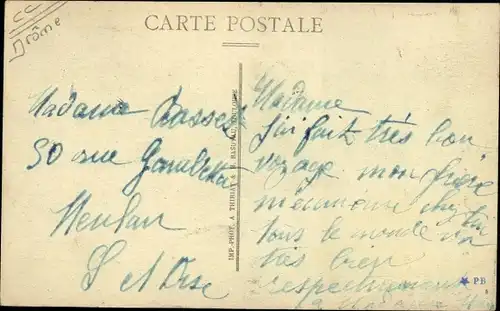 CC
Drôme
CARTE POSTALE
Madame
50 rue Gambetta
Meulan
S et Oise
IMP.-PHOT. A. THIRIAT & TOULOUSE
Madame
J'ai fait très bon
voyage mon frère
chez lui
tous le monde va
très bien
respectueuse
PB